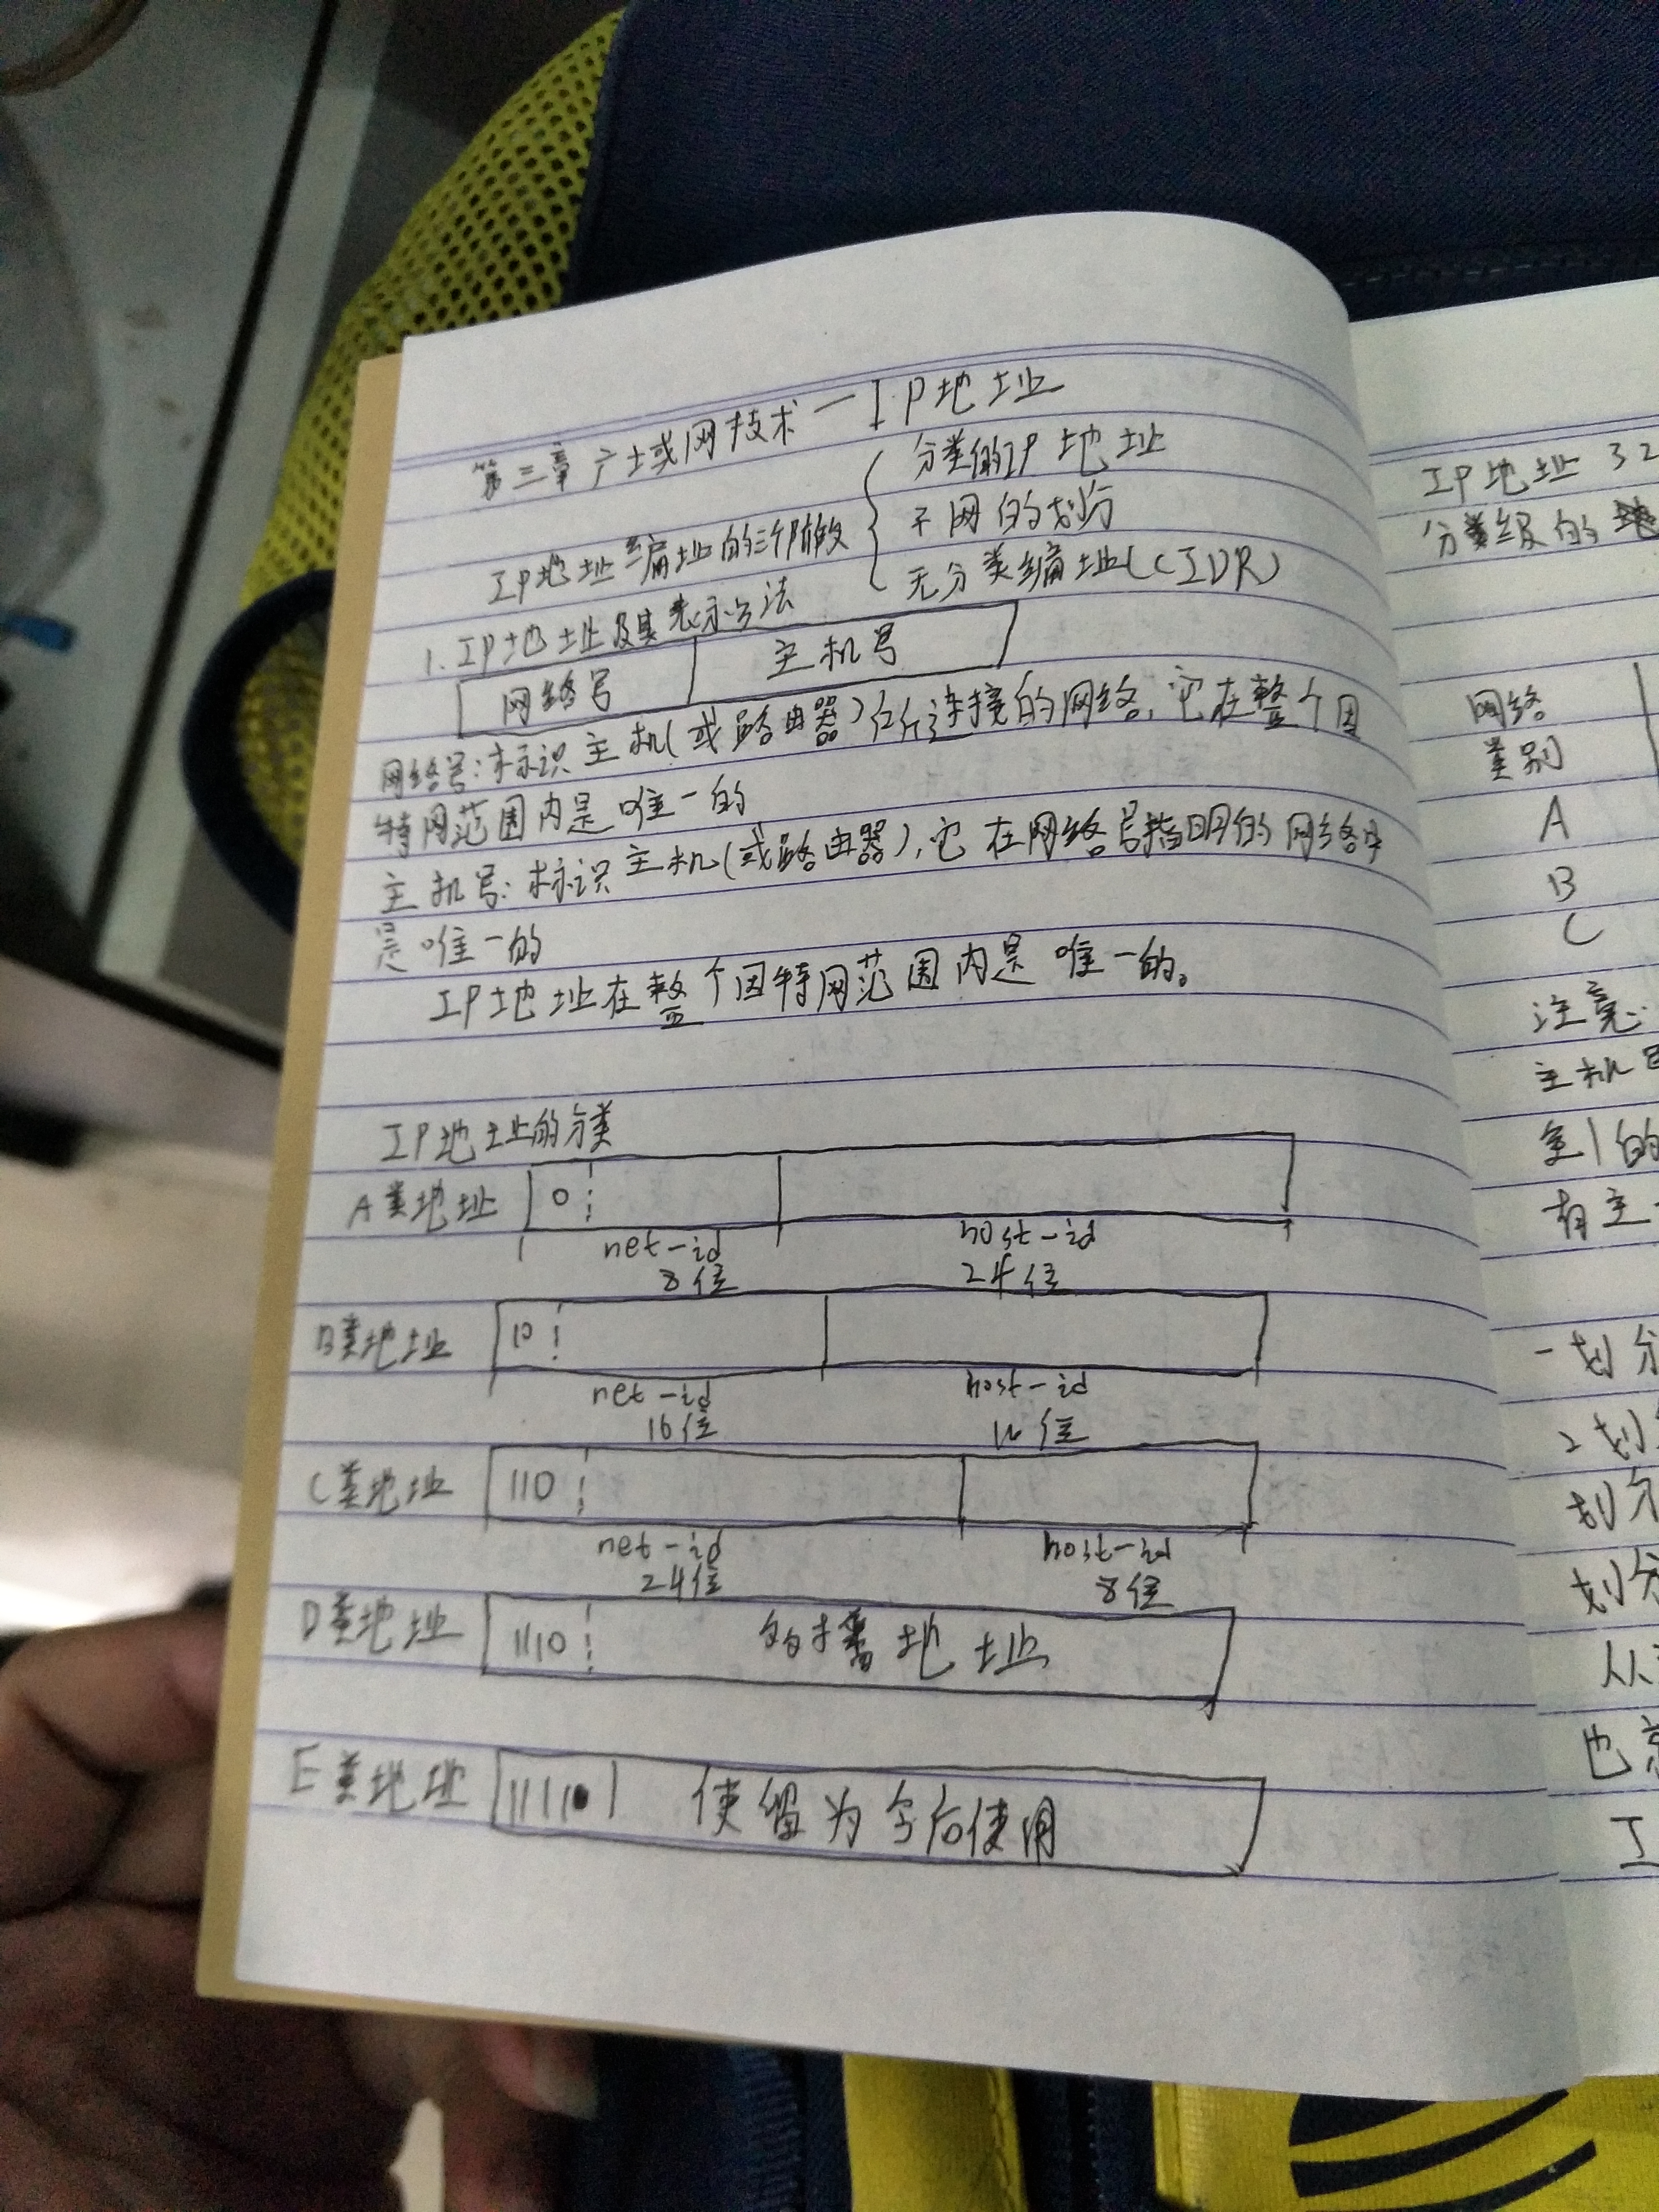 第三章广域网技术—IP地址
IP地址编址的三个阶段
分类的IP地址
子网的划分
无分类编址(CIDR)
1.IP地址及其表示方法
网络号 主机号
网络号:标识主机(或路由器)所连接的网络,它在整个因
特网范围内是唯一的
主机号:标识主机(或路由器),它在网络号指明的网络中
是唯一的
IP地址在整个因特网范围内是唯一的。
IP地址的分类
A类地址 0
net-id host-id
8位 24位
B类地址 10
net-id host-id
16位 16位
C类地址 110
net-id host-id
24位 8位
D类地址 1110 多播地址
E类地址 11110 使留为今后使用
IP地址 32
分类级的地
网络
类别
A
B
C
注意:
主机
全1的
有主
一划分
2划
划分
划分
从
也
I